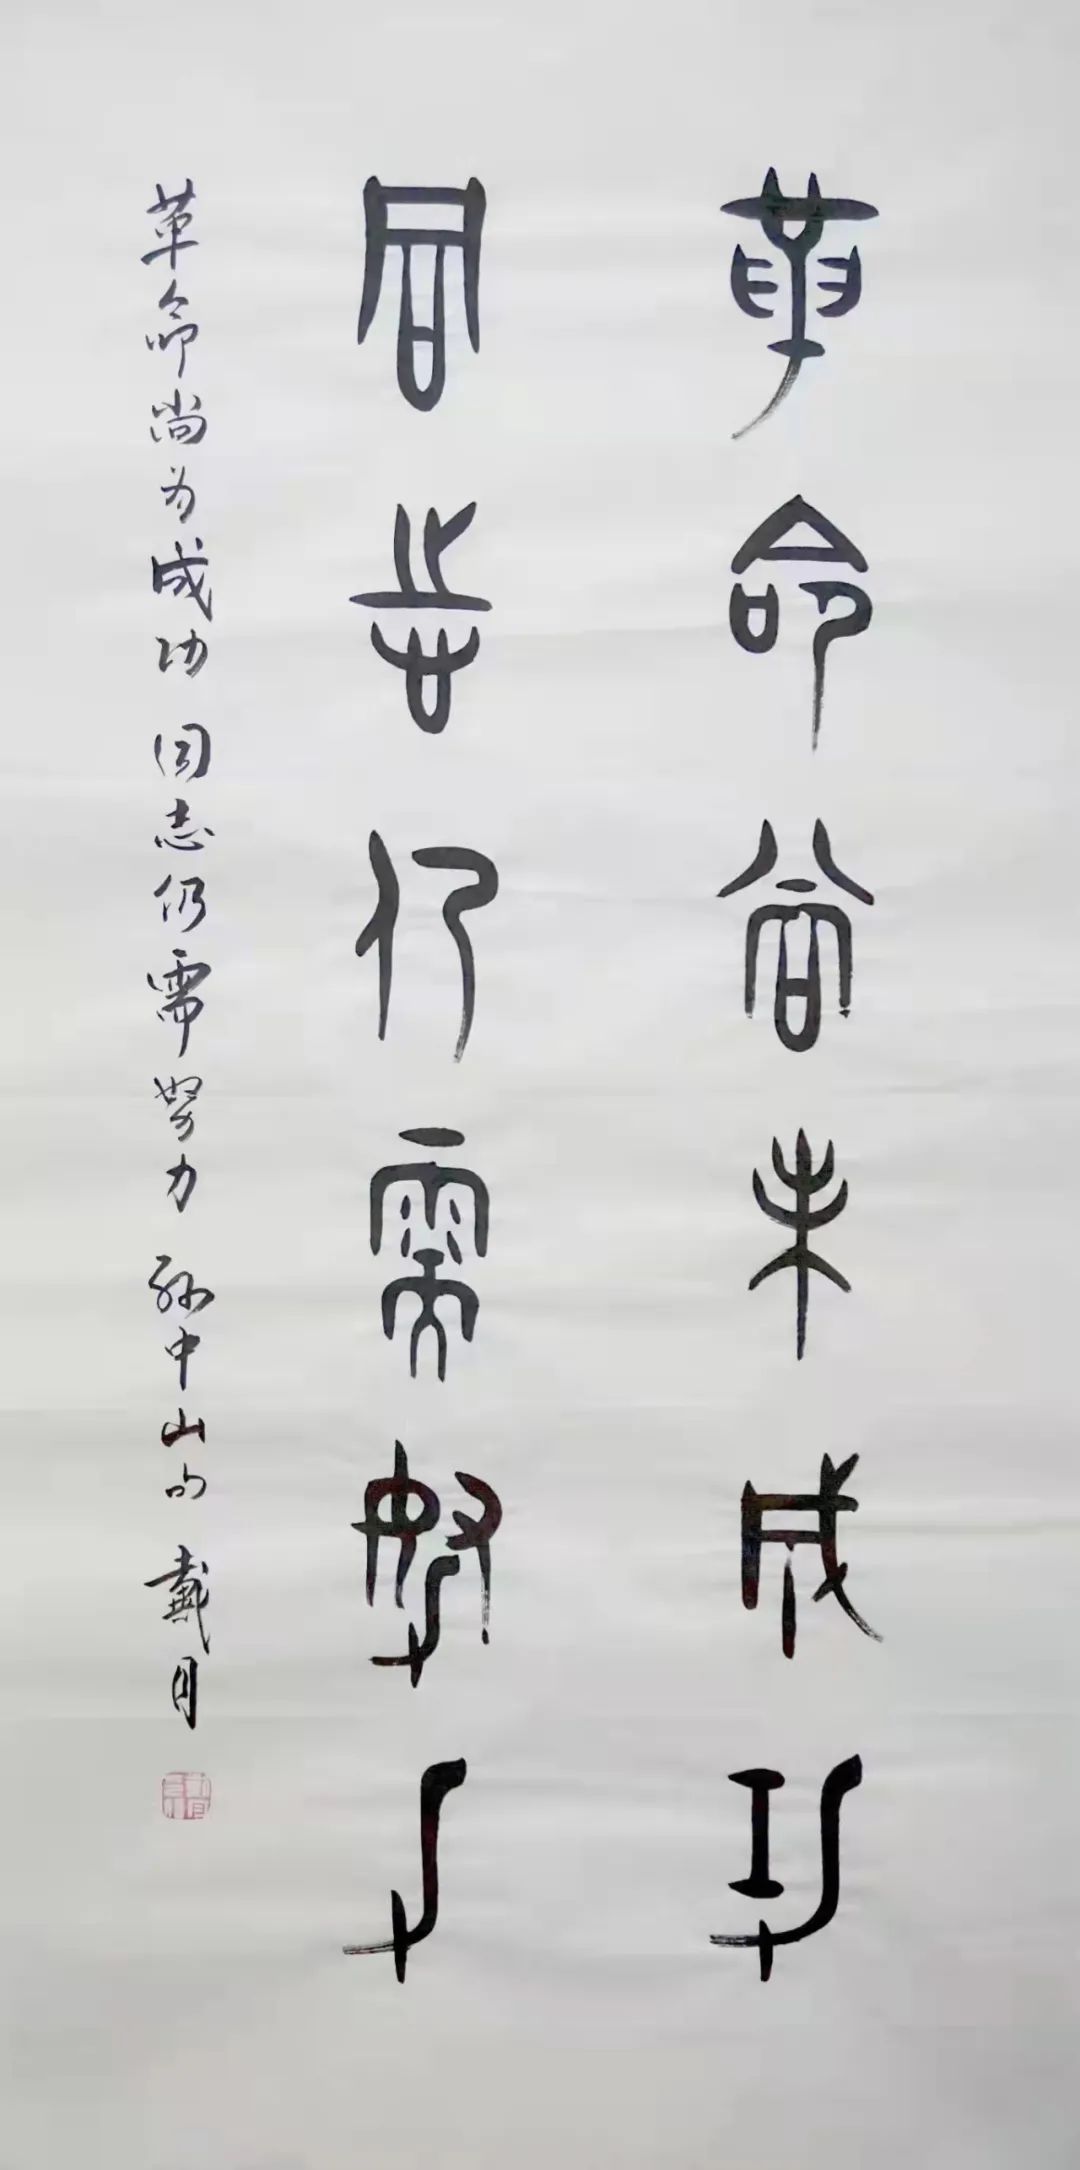 革命尚未成功
同志仍需努力
革命尚为成功 同志仍需努力 孙中山句 戴月